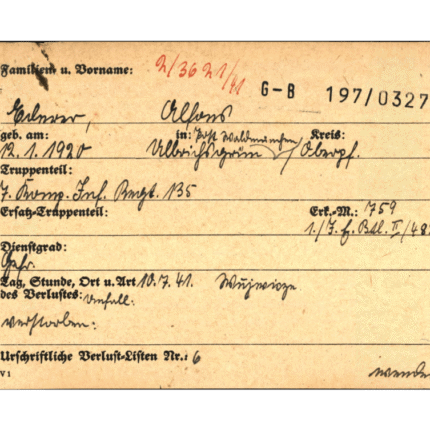 Familien u. Vorname: 2/36 21/41 G-B 197/0327
Ederer, Alfons
geb. am: in: Post Waldmünchen Kreis:
12.1.1920 Ullrichsgrün / Oberpf.
Truppenteil:
7. Komp. Inf. Regt. 135
Ersatz-Truppenteil: Erk.-M.: 759
1./I. E. Btl. II/48
Dienstgrad:
Gefr.
Tag, Stunde, Ort u. Art 10.7.41.
des Verlustes: Unfall.
verstorben:
Urschriftliche Verlust-Listen Nr.: 6
V 1 wenden